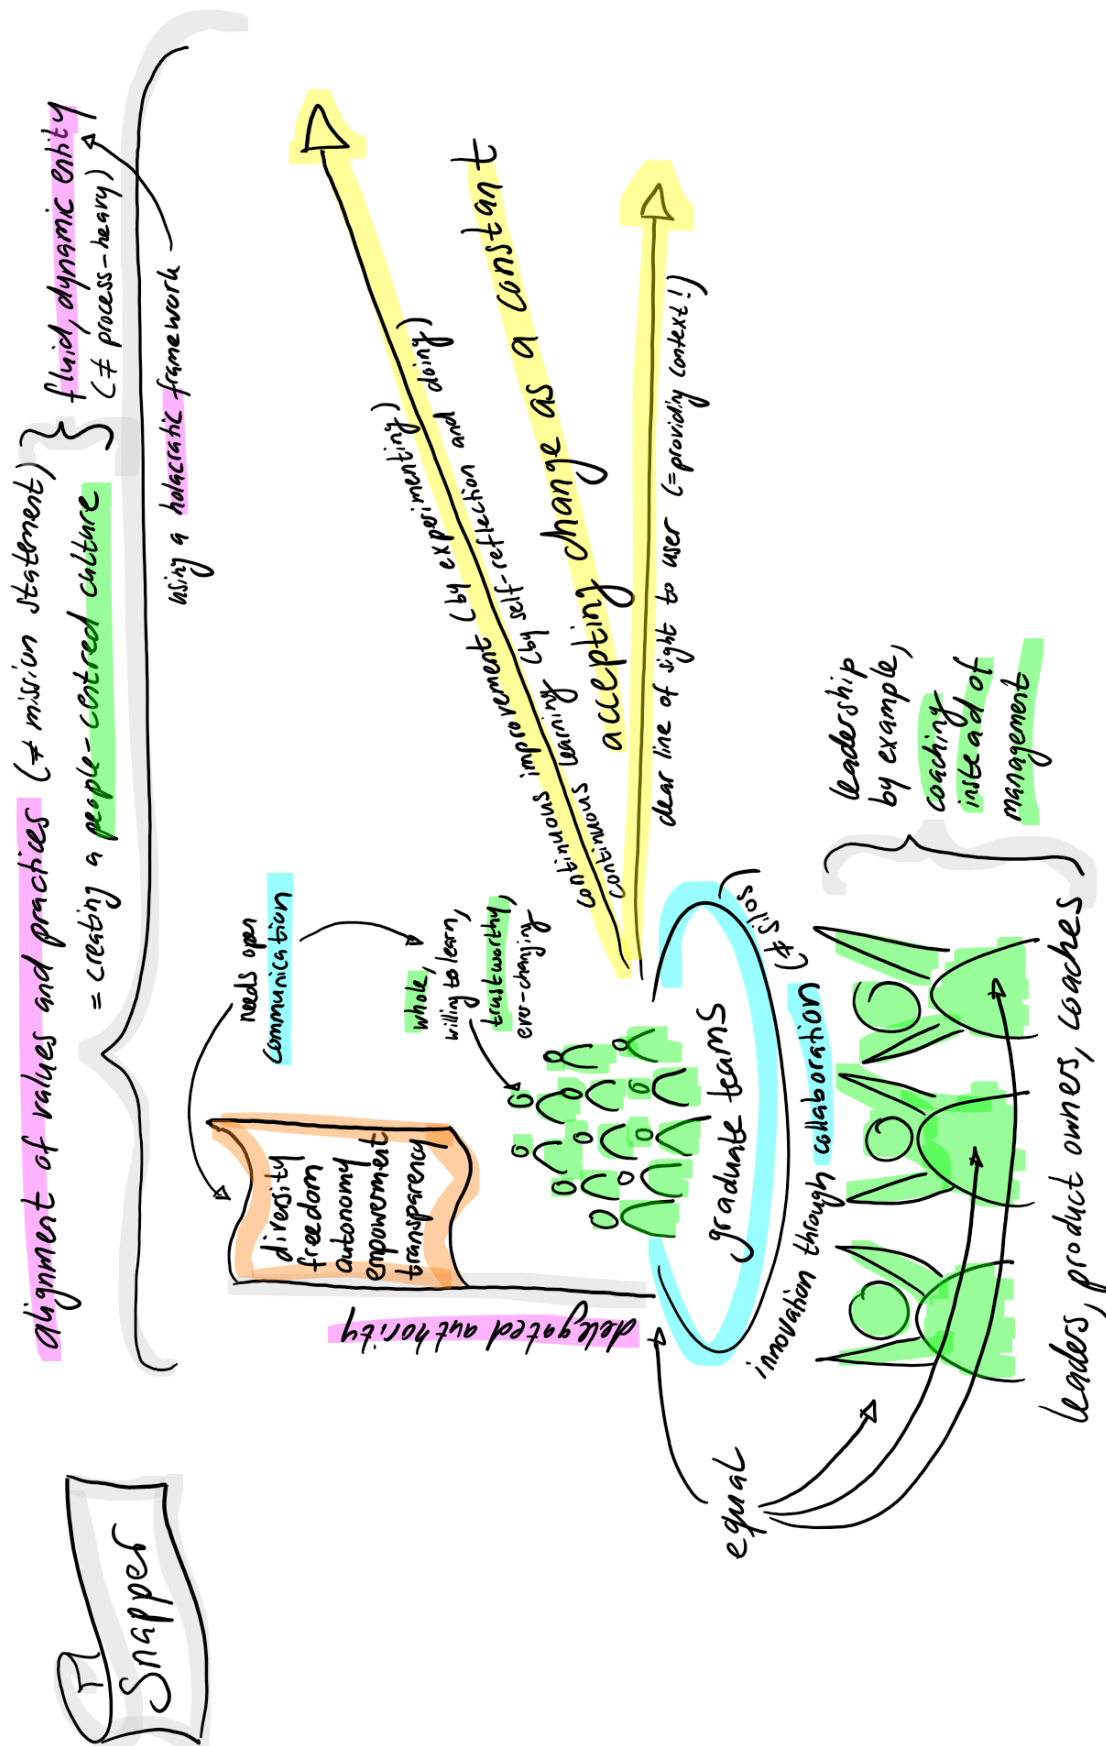 Snapper
alignment of values and practices (≠ mission statement)
= creating a people-centred culture
fluid, dynamic entity
(≠ process-heavy)
using a holacratic framework
needs open
communication
diversity
freedom
autonomy
empowerment
transparency
delegated authority
whole,
willing to learn,
trustworthy,
ever-changing
continuous improvement (by experimenting)
continuous learning (by self-reflection and doing)
accepting change as a constant
clear line of sight to user (=providing context!)
graduate teams
innovation through collaboration (≠ silos)
equal
leadership
by example,
coaching
instead of
management
leaders, product owners, coaches